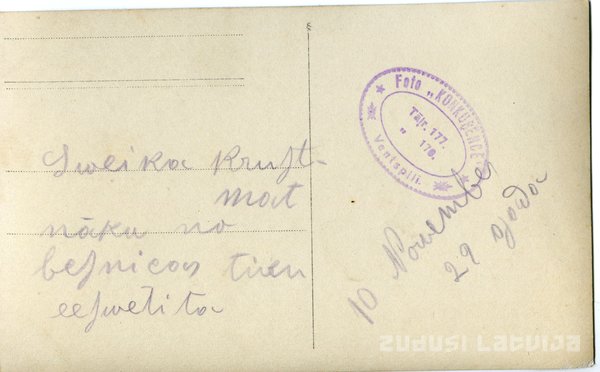 Sweika Krust-
mat
nāku no
basnicas tiku
eeswetita
Foto „KONKURENCE"
Tālr. 177.
„ 178.
Ventspilī.
10 November
29 gada
ZUDUSI LATVIJA